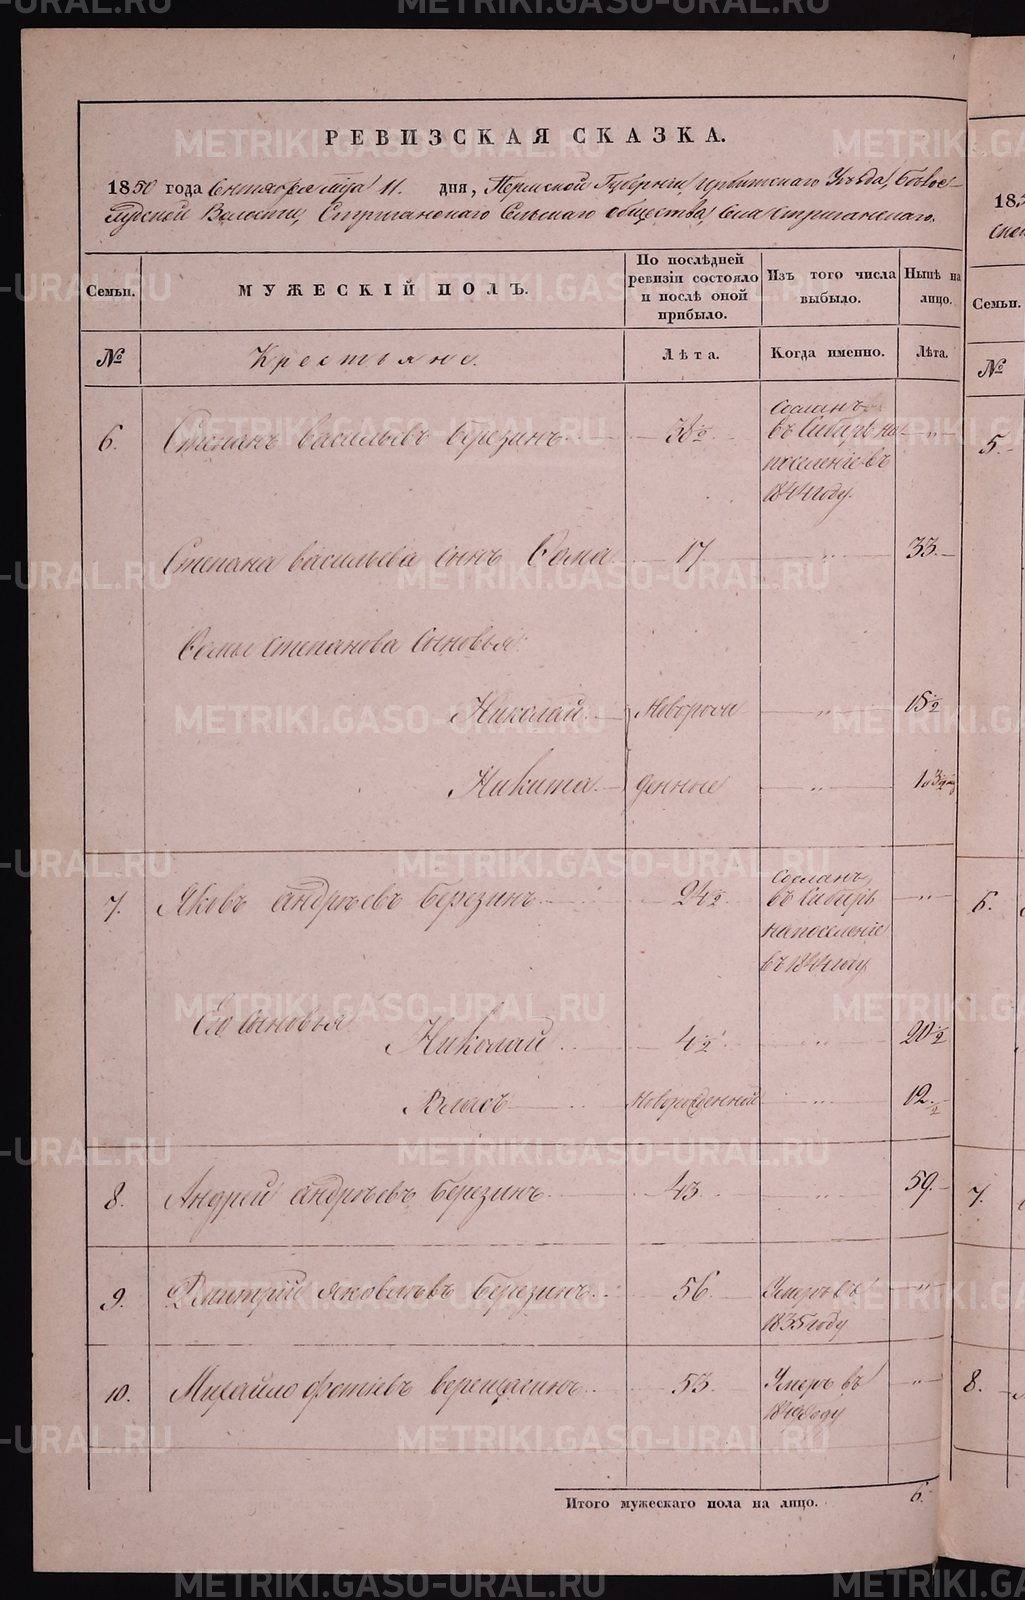 РЕВИЗСКАЯ СКАЗКА.
1850 года Сентября мца 11. дня, Пермской Губернии Ирбитскаго Уезда,
Волости, Стриганскаго Сельскаго общества, Села Стриганскаго.
Семьи.
МУЖЕСКІЙ ПОЛЪ.
По последней ревизіи состояло и после оной прибыло.
Изъ того числа выбыло.
Ныне на лицо.
№
Крестьяне.
Лета.
Когда именно.
Лета.
6. Степанъ Васильевъ Березинъ 38½ „
Сосланъ
въ Сибирь на
поселеніе въ
1844 году.
Степана Васильева сынъ Фома 17 „ 33.
Фомы Степанова Сыновья:
Николай Новорож „ 15½
Никита денные „
7. Яковъ Андреевъ Березинъ 24½ „
Сосланъ
въ Сибирь
на поселеніе
въ 1844 году
Его сыновья
Николай 4½ „ 20½
Власъ Новорожденный „ 12.½
8. Андрей Андреевъ Березинъ 43. „ 59.
9. Дмитрій Яковлевъ Березинъ 56. Умеръ въ „
1835 году
10. Михайло Фотіевъ Верещагинъ 53. Умеръ въ „
году
Итого мужескаго пола на лицо. 6.
Семьи.
№
5.
6.
7.
8.
METRIKI.GASO-URAL.RU